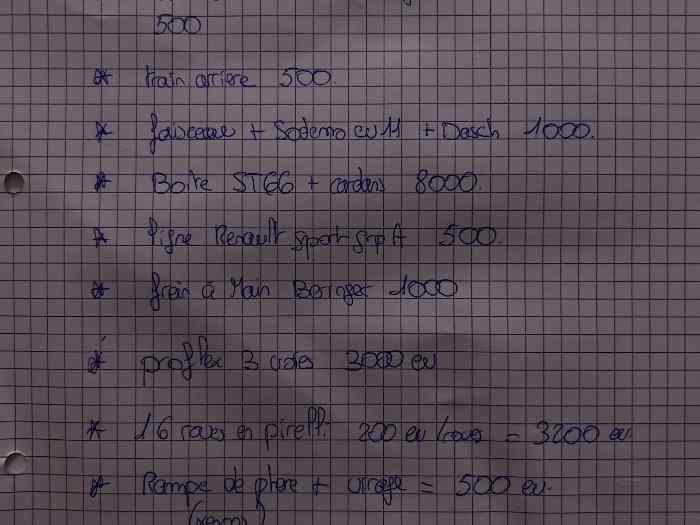 500
* train arriere 500.
* faisceau + Sodemo cv11 + Dasch 1000.
* Boite ST66 + cardans 8000.
* ligne Renault sport grp A 500.
* frein à Main Beringer 1000
* proflex 3 voies 3000 eu
* 16 roues en pirelli 200 eu /roues = 3200 eu.
* Rampe de phare + virage = 500 eu.
(xenon)